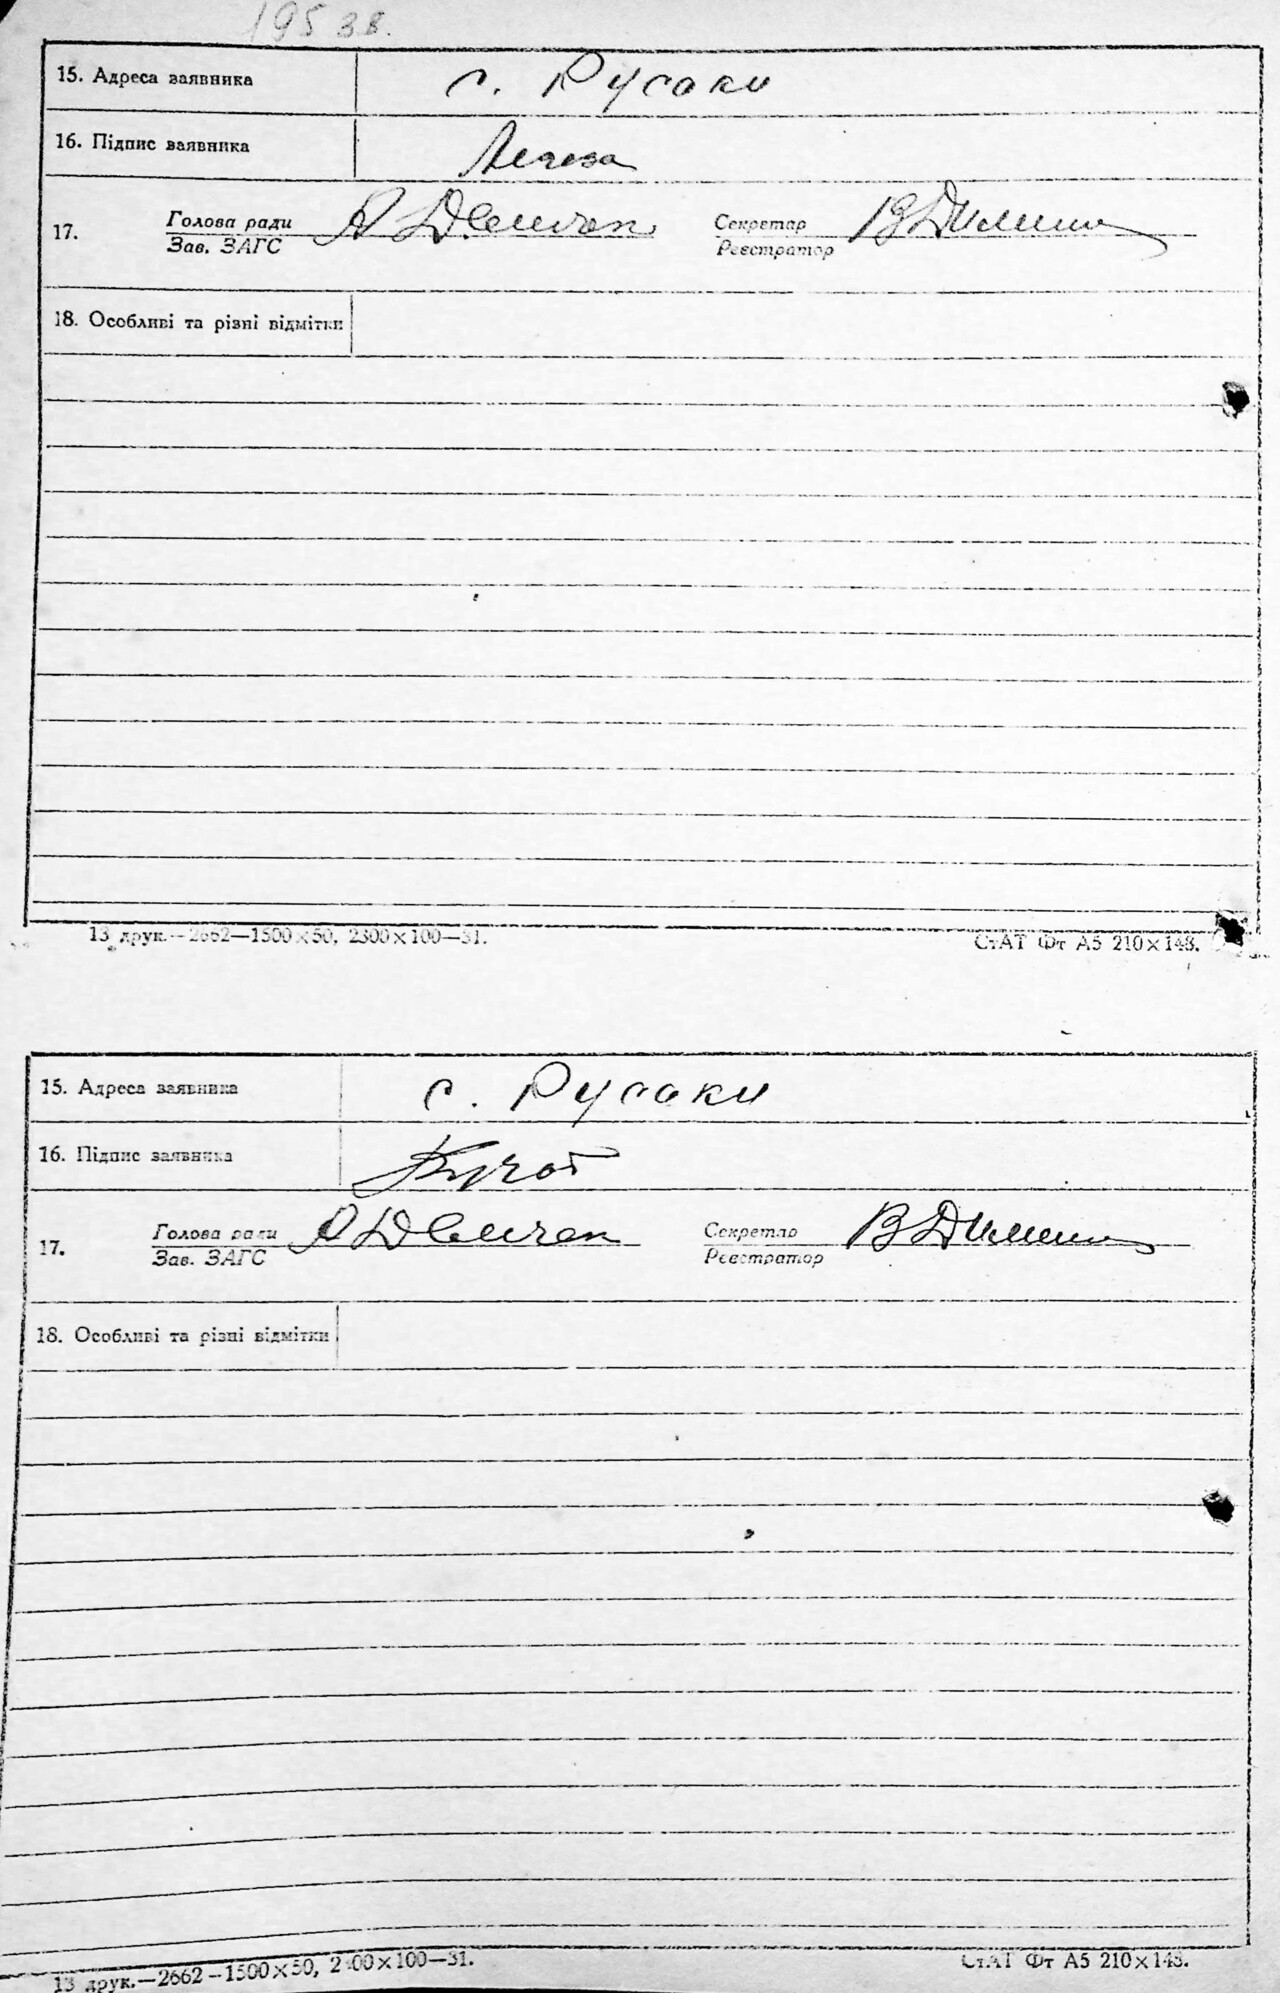 195 зв.
15. Адреса заявника с. Русаки
16. Підпис заявника
17. Голова ради Секретар
Зав. ЗАГС Реєстратор
18. Особливі та різні відмітки
13 друк.—2662—1500×50, 2300×100—31.
СтАТ Фт А5 210×148.
15. Адреса заявника с. Русаки
16. Підпис заявника
17. Голова ради Секретар
Зав. ЗАГС Реєстратор
18. Особливі та різні відмітки
13 друк.—2662—1500×50, 2300×100—31.
СтАТ Фт А5 210×148.